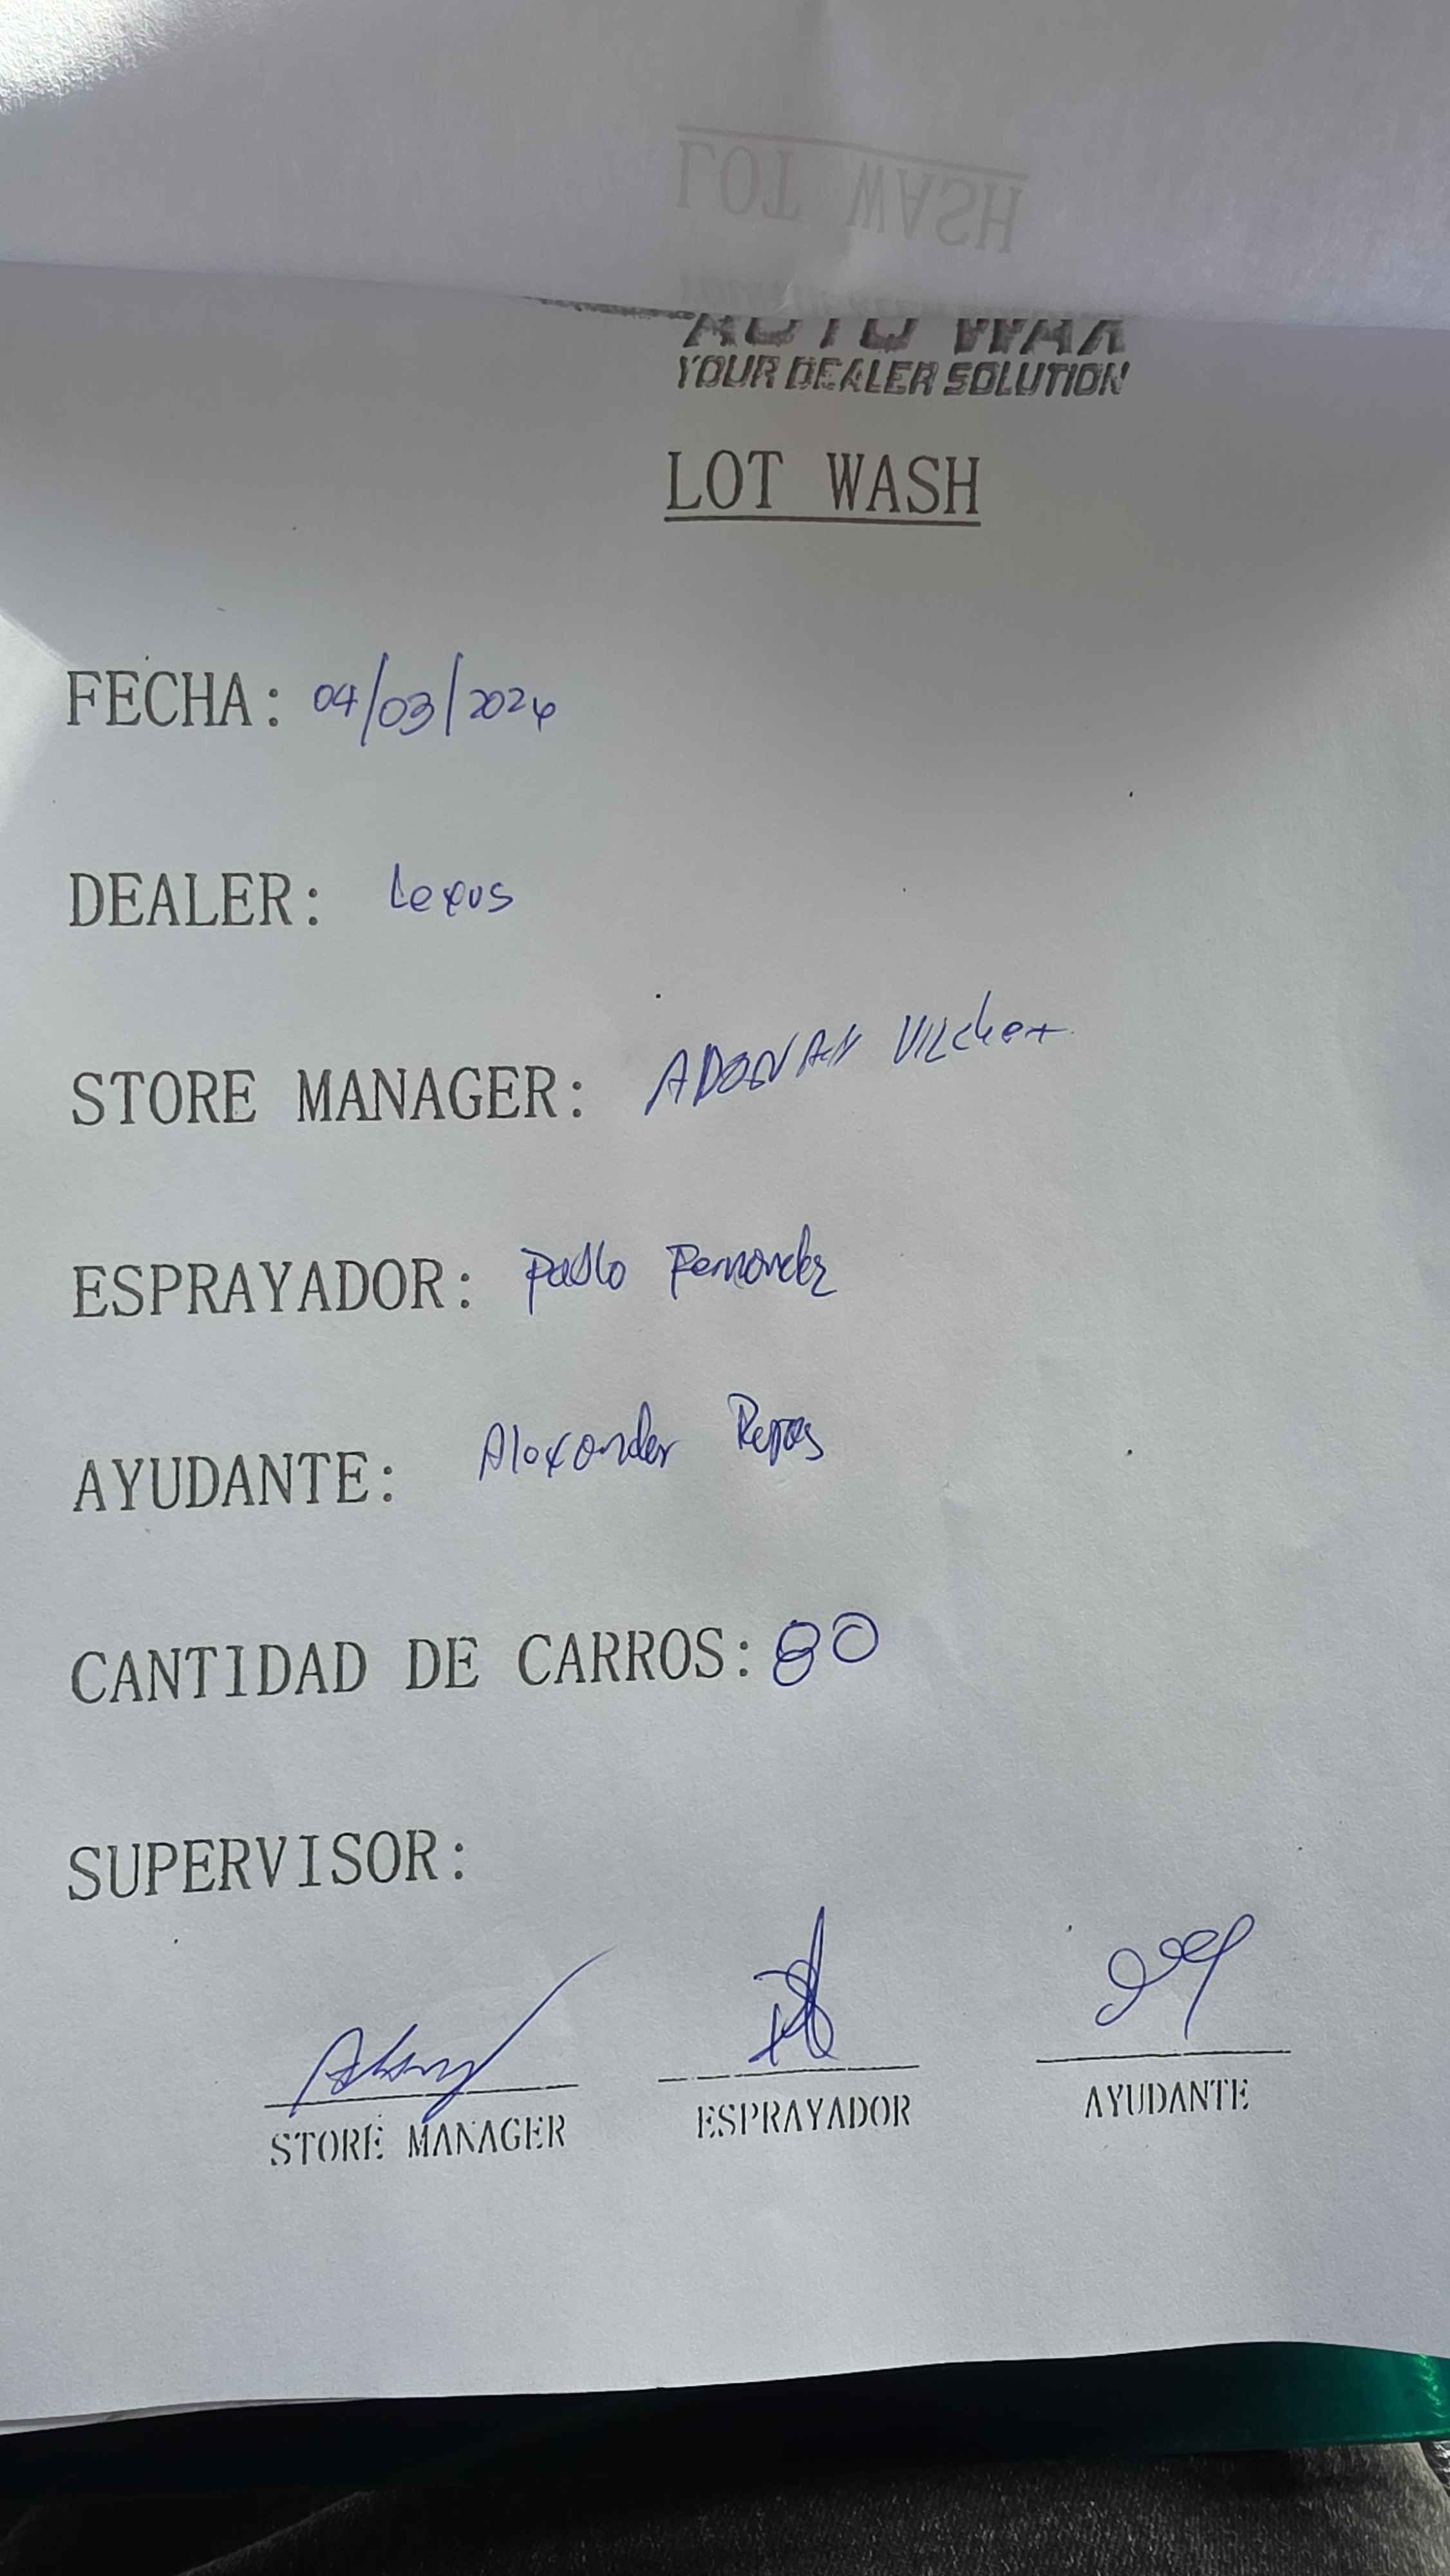 LOT WASH
AUTO WAX
YOUR DEALER SOLUTION
LOT WASH
FECHA: 04/03/2024
DEALER: Lexus
STORE MANAGER: ADONAY VILchez
ESPRAYADOR: Pablo Fernandez
AYUDANTE: Alexander Reyes
CANTIDAD DE CARROS: 80
SUPERVISOR:
STORE MANAGER ESPRAYADOR AYUDANTE